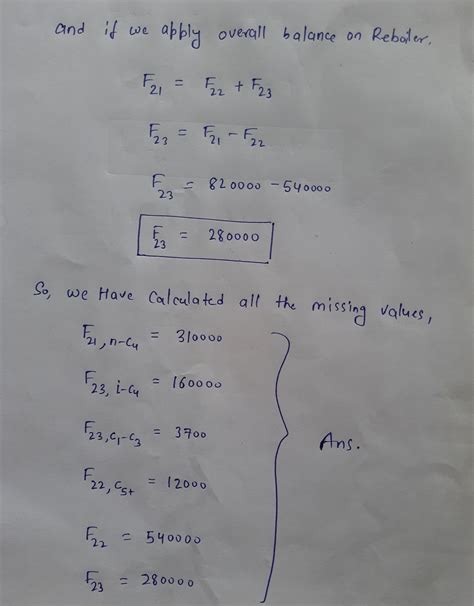 and if we apply overall balance on Reboiler.
F21 = F22 + F23
F23 = F21 - F22
F23 = 820000 - 540000
F23 = 280000
So, we Have calculated all the missing values,
F21, n-C4 = 310000
F23, i-C4 = 160000
F23, C1-C3 = 3700
Ans.
F22, C5+ = 12000
F22 = 540000
F23 = 280000